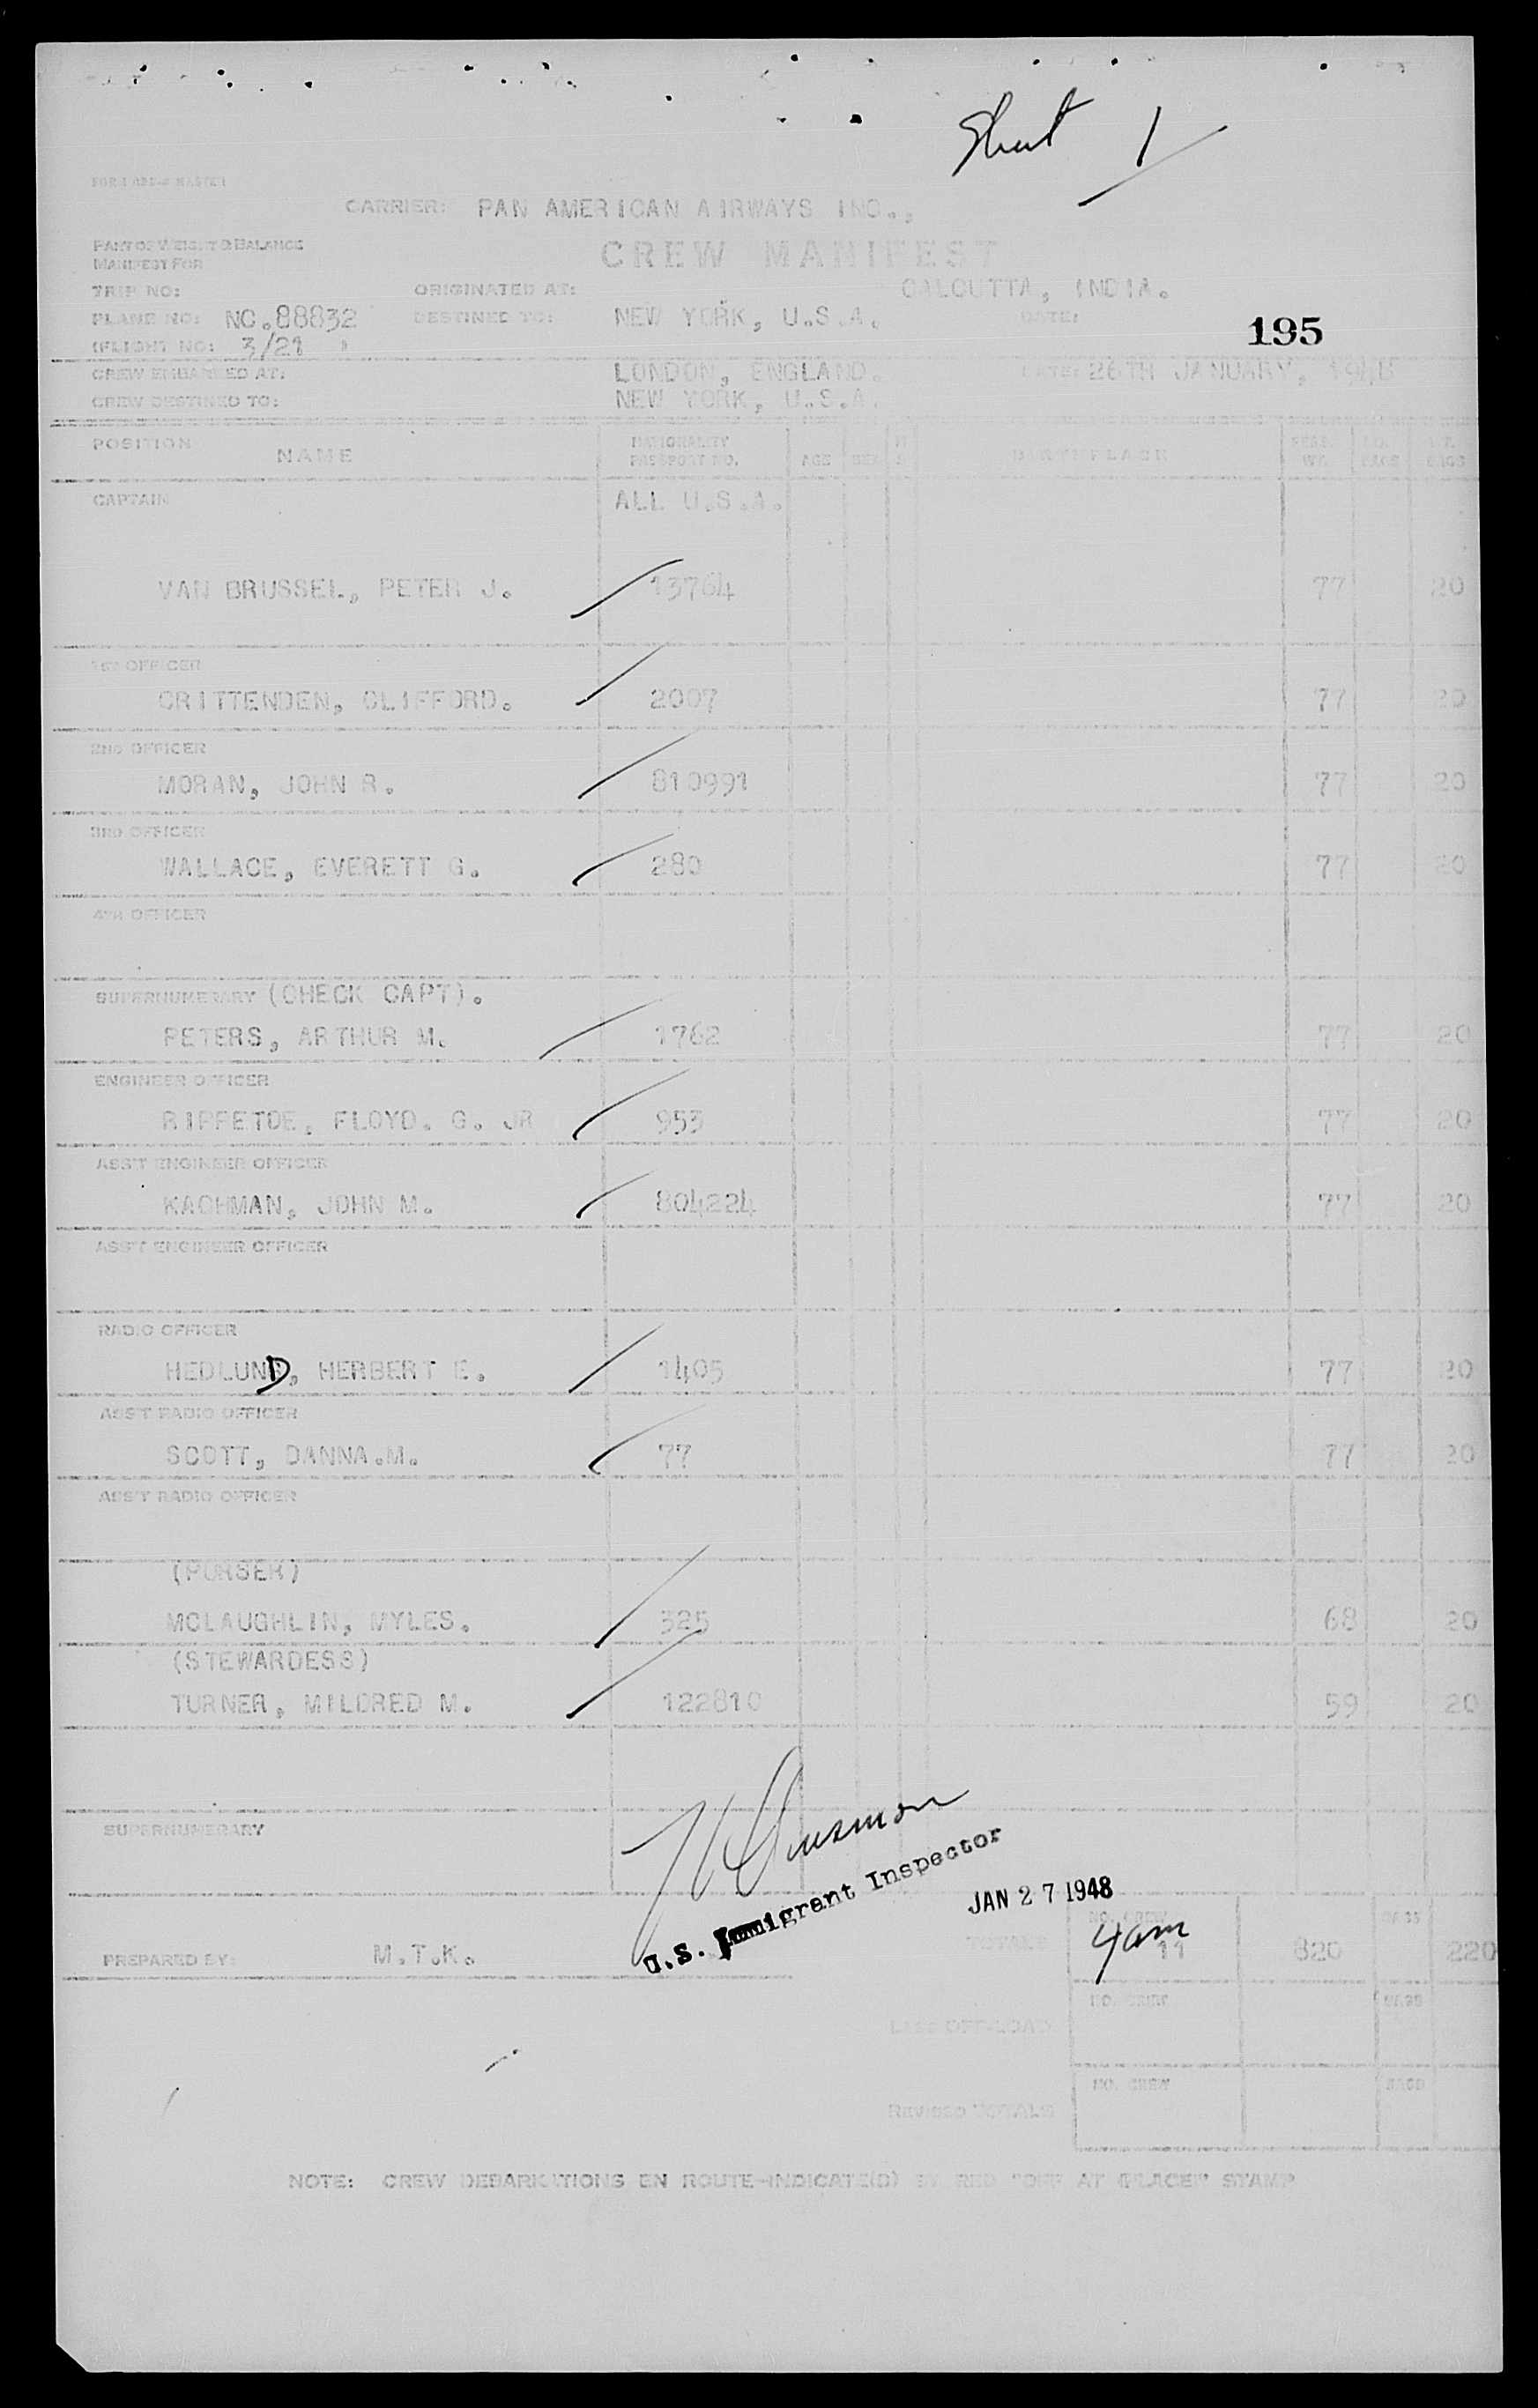 Sheet 1
FORM MASTER
CARRIER: PAN AMERICAN AIRWAYS INC.,
PART OF WEIGHT & BALANCE
MANIFEST FOR
CREW MANIFEST
TRIP NO: ORIGINATED AT: CALCUTTA, INDIA.
PLANE NO: NC.88832 DESTINED TO: NEW YORK, U.S.A. DATE: 195
(FLIGHT NO: 3/21 )
CREW EMBARKED AT: LONDON, ENGLAND. DATE: 26TH JANUARY, 1948
CREW DESTINED TO: NEW YORK, U.S.A.
POSITION NAME NATIONALITY PASSPORT NO. AGE SEX BIRTHPLACE WT. BAGS
CAPTAIN ALL U.S.A.
VAN BRUSSEL, PETER J. 13764 77 20
1ST OFFICER
CRITTENDEN, CLIFFORD. 2007 77 20
2ND OFFICER
MORAN, JOHN R. 810991 77 20
3RD OFFICER
WALLACE, EVERETT G. 280 77 20
4TH OFFICER
SUPERNUMERARY (CHECK CAPT).
PETERS, ARTHUR M. 1762 77 20
ENGINEER OFFICER
RIPPETOE, FLOYD. G. JR 953 77 20
ASS'T ENGINEER OFFICER
KACHMAN, JOHN M. 804224 77 20
ASS'T ENGINEER OFFICER
RADIO OFFICER
HEDLUND, HERBERT E. 1405 77 20
ASS'T RADIO OFFICER
SCOTT, DANNA.M. 77 77 20
ASS'T RADIO OFFICER
(PURSER)
MCLAUGHLIN, MYLES. 325 68 20
(STEWARDESS)
TURNER, MILDRED M. 122810 59 20
SUPERNUMERARY
U.S. Immigrant Inspector
JAN 27 1948
4am
NO. CREW BAGS
PREPARED BY: M.T.K. TOTALS 11 820 220
NO. CREW BAGS
LESS OFF-LOAD
NO. CREW BAGS
REVISED TOTALS
NOTE: CREW DEBARKATIONS EN ROUTE-INDICATE(D) BY RED "OFF AT (PLACE" STAMP